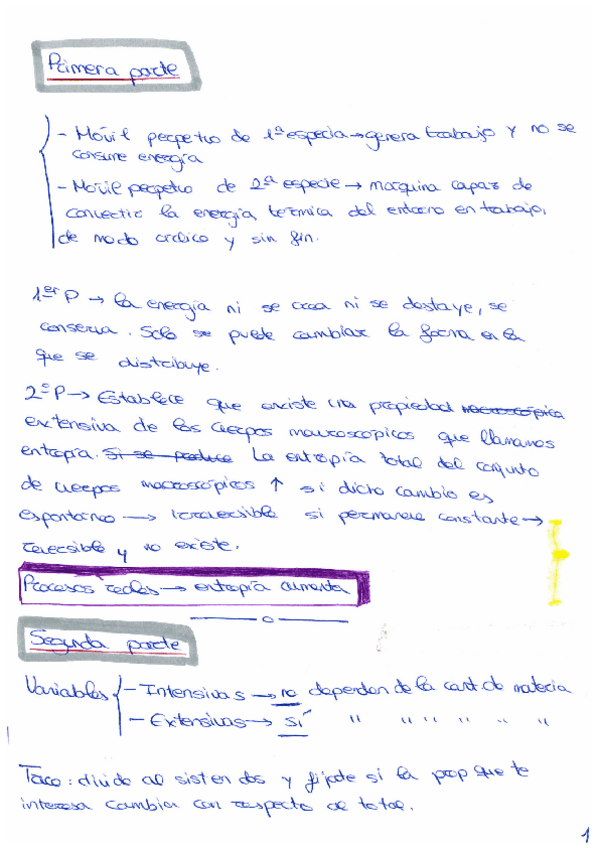 Primera parte
- Móvil perpetuo de 1ª especie → genera trabajo y no se
consume energía
- Móvil perpetuo de 2ª especie → maquina capaz de
convertir la energía termica del entorno en trabajo,
de modo cíclico y sin fin.
1er P → la energía ni se crea ni se destuye, se
conserva. Solo se puede cambiar la forma en la
que se distribuye.
2º P → Establece que existe una propiedad macroscópica
extensiva de los cuerpos macroscópicos que llamamos
entropía. Si se produce La entropía total del conjunto
de cuerpos macroscópicos ↑ si dicho cambio es
espontáneo → irreversible si permanece constante →
reversible y no existe.
Procesos reales → entropía aumenta
Segunda parte
Variables - Intensivas → no dependen de la cant de materia
- Extensivas → sí " " " " " "
Truco: divido al sistema en dos y fíjate si la prop que te
interesa cambia con respecto al total.
1